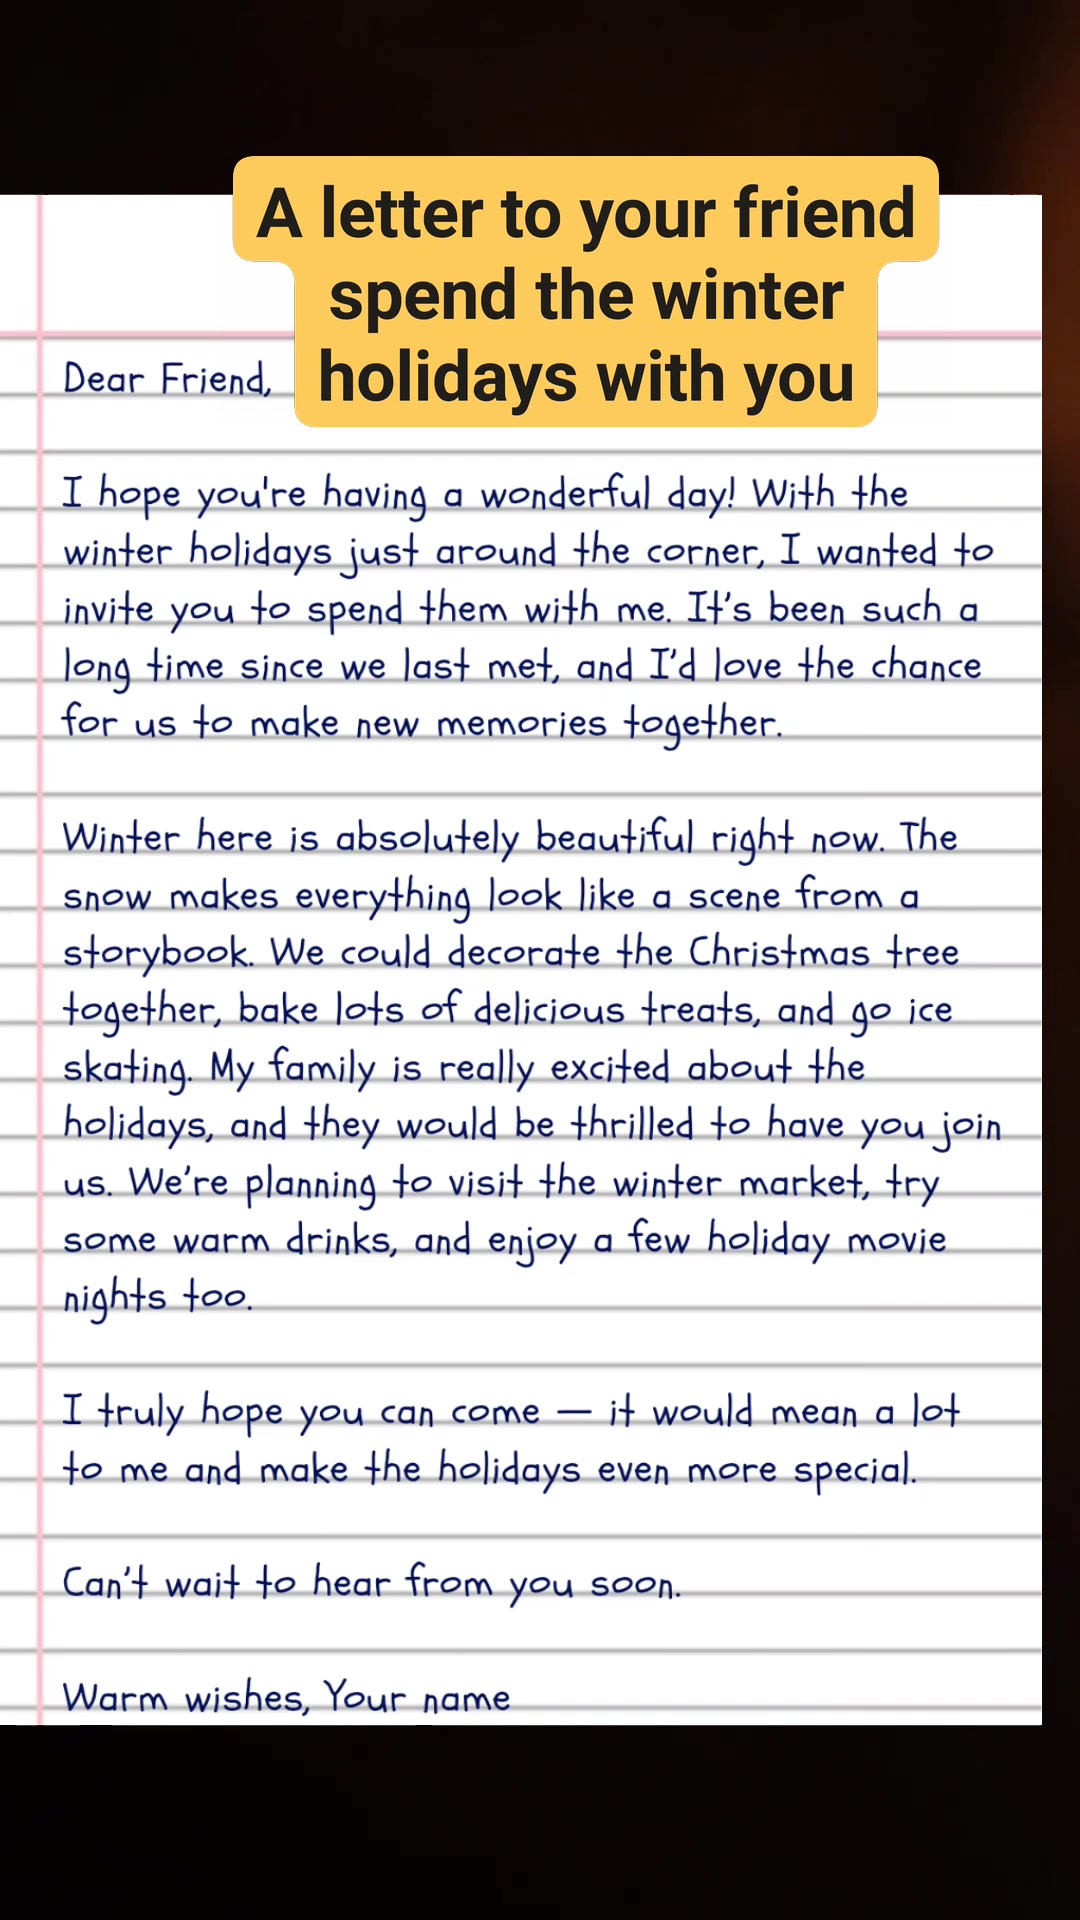 A letter to your friend
spend the winter
holidays with you
Dear Friend,
I hope you're having a wonderful day! With the
winter holidays just around the corner, I wanted to
invite you to spend them with me. It's been such a
long time since we last met, and I'd love the chance
for us to make new memories together.
Winter here is absolutely beautiful right now. The
snow makes everything look like a scene from a
storybook. We could decorate the Christmas tree
together, bake lots of delicious treats, and go ice
skating. My family is really excited about the
holidays, and they would be thrilled to have you join
us. We're planning to visit the winter market, try
some warm drinks, and enjoy a few holiday movie
nights too.
I truly hope you can come — it would mean a lot
to me and make the holidays even more special.
Can't wait to hear from you soon.
Warm wishes, Your name